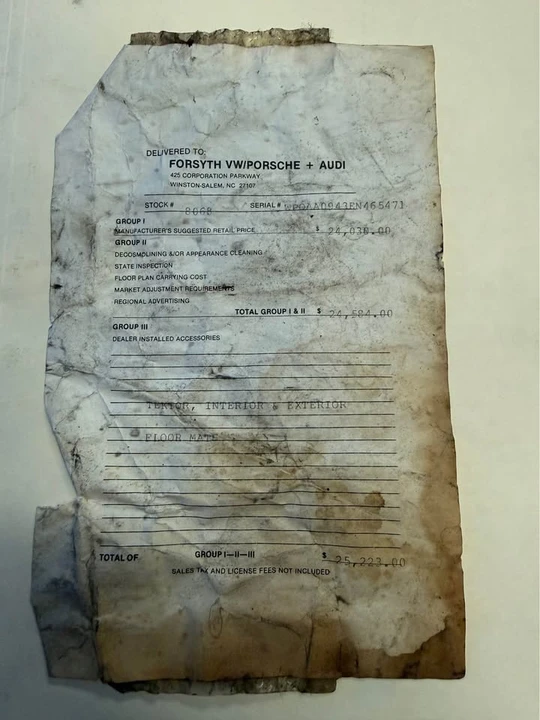 DELIVERED TO:
FORSYTH VW/PORSCHE + AUDI
425 CORPORATION PARKWAY
WINSTON-SALEM, NC 27107
STOCK # 8668 SERIAL # WP0AA0943EN465471
GROUP I
MANUFACTURER'S SUGGESTED RETAIL PRICE $ 24,038.00
GROUP II
DECOSMOLINING &/OR APPEARANCE CLEANING
STATE INSPECTION
FLOOR PLAN CARRYING COST
MARKET ADJUSTMENT REQUIREMENTS
REGIONAL ADVERTISING
TOTAL GROUP I & II $ 24,584.00
GROUP III
DEALER INSTALLED ACCESSORIES
INTERIOR & EXTERIOR
FLOOR MATS
TOTAL OF GROUP I—II—III $ 25,223.00
SALES TAX AND LICENSE FEES NOT INCLUDED